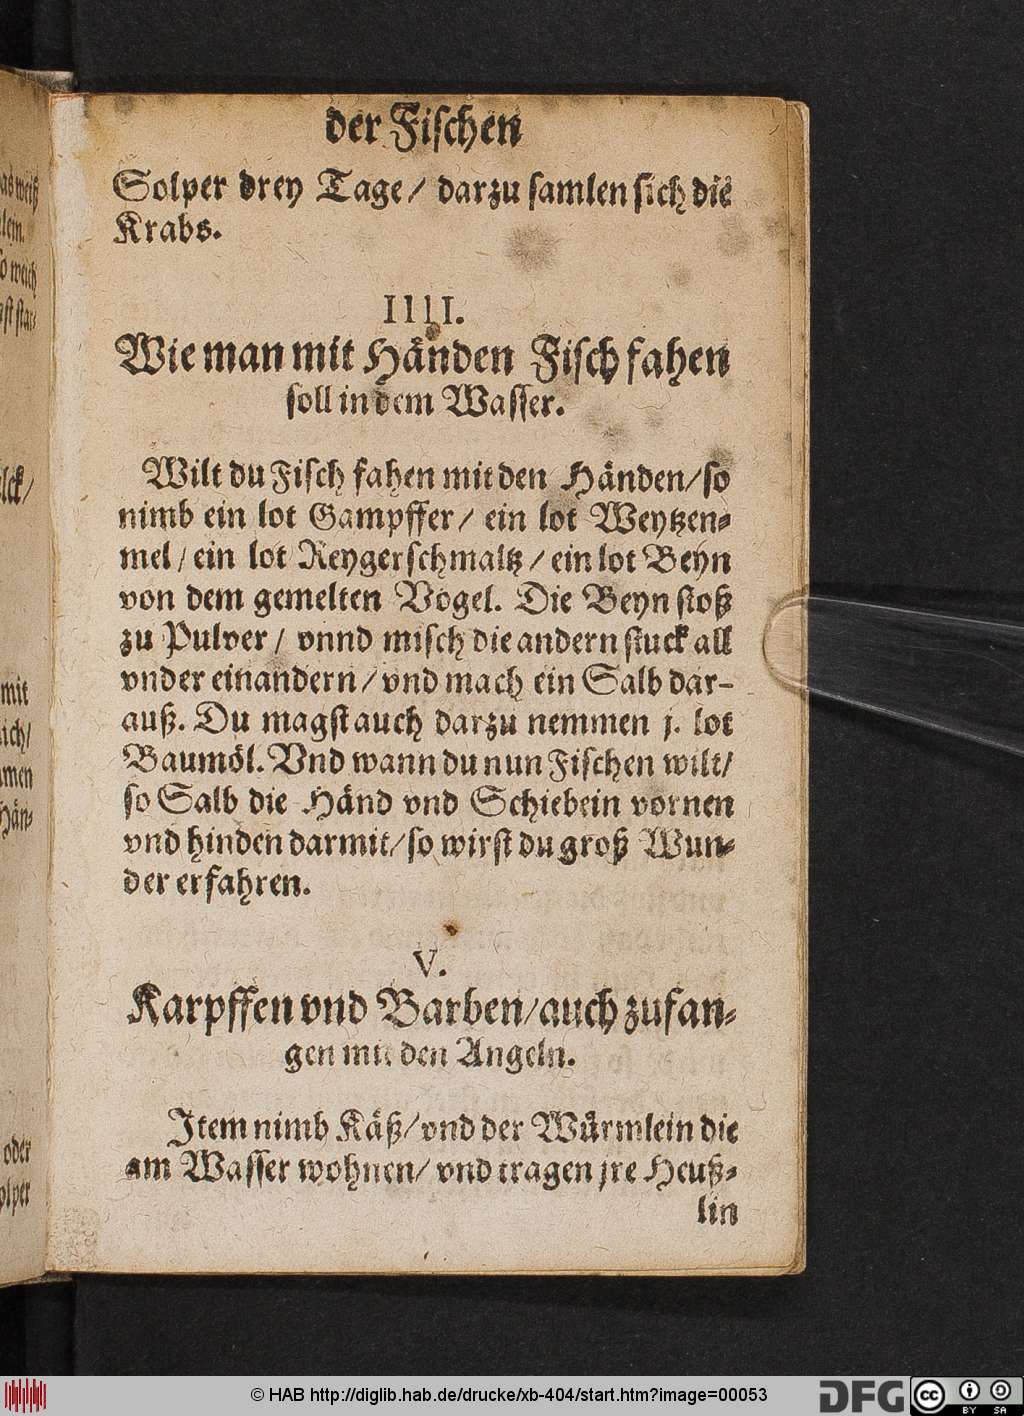 der Fischen
Solper drey Tage / darzu samlen sich die
Krabs.
IIII.
Wie man mit Händen Fisch fahen
soll in dem Wasser.
Wilt du Fisch fahen mit den Händen / so
nimb ein lot Gampffer / ein lot Weytzen-
mel / ein lot Reygerschmaltz / ein lot Beyn
von dem gemelten Vogel. Die Beyn stoß
zu Pulver / vnnd misch die andern stuck all
vnder einandern / vnd mach ein Salb dar-
auß. Du magst auch darzu nemmen j. lot
Baumöl. Vnd wann du nun Fischen wilt /
so Salb die Händ vnd Schiebein vornen
vnd hinden darmit / so wirst du groß Wun-
der erfahren.
V.
Karpffen vnd Barben / auch zufan-
gen mit den Angeln.
Item nimb Käß / vnd der Würmlein die
am Wasser wohnen / vnd tragen jre Heuß-
lin
as weiß
lein.
so weich
gst star-
lck /
mit
lich /
men
Hän-
oder
olper
© HAB http://diglib.hab.de/drucke/xb-404/start.htm?image=00053
DFG
cc
BY SA